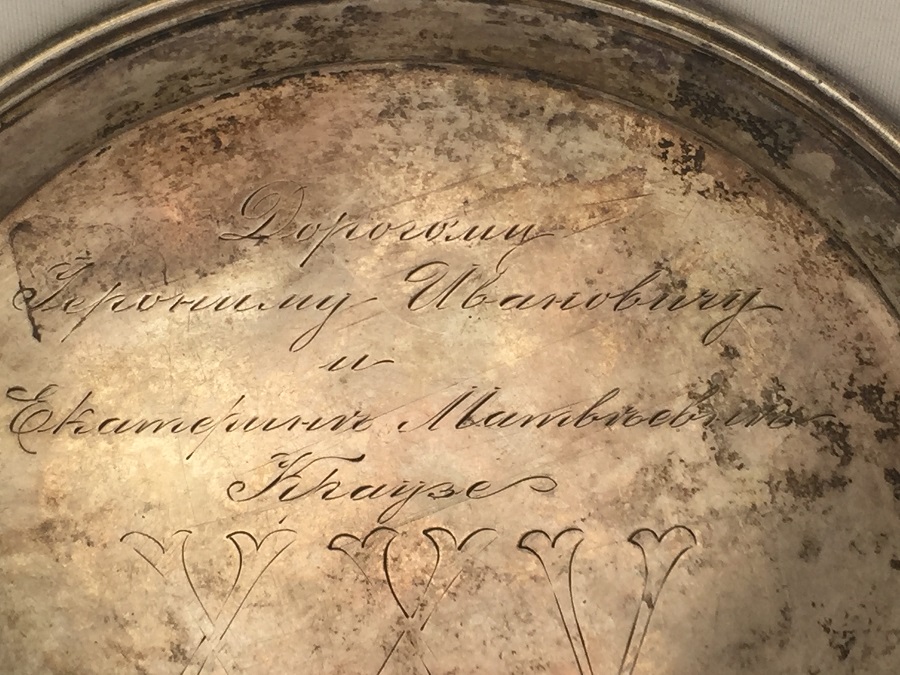 Дорогому
Іерониму Ивановичу
и
Екатеринѣ Матвѣевнѣ
Краузе
XXV